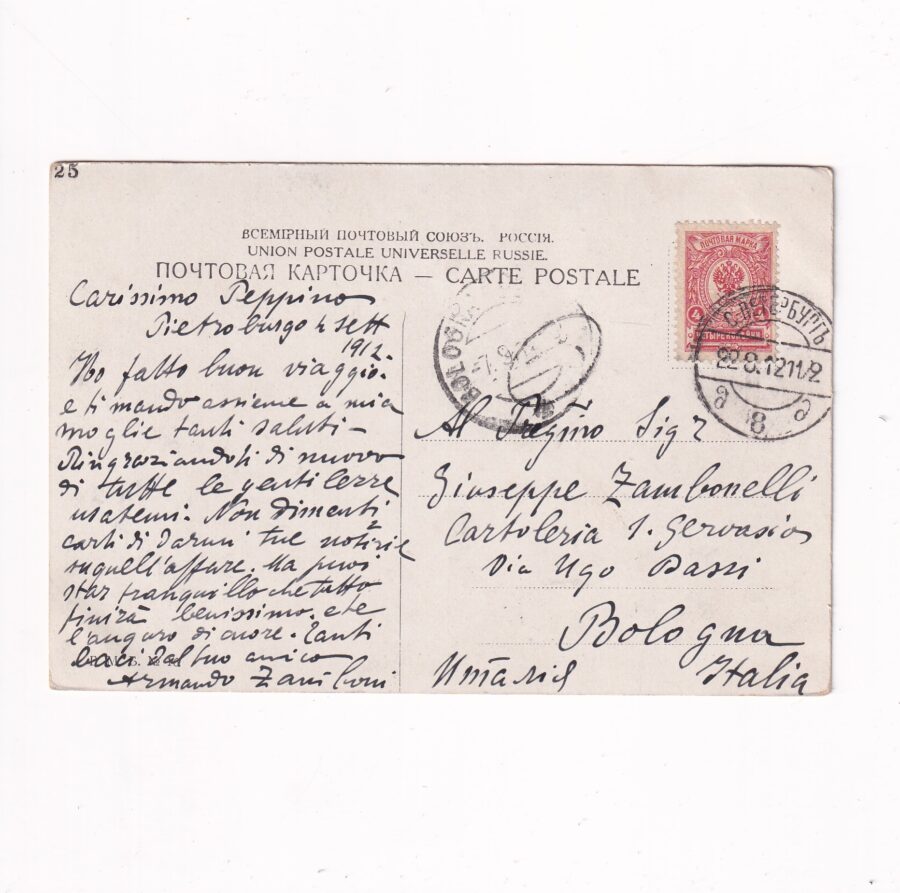 25
ВСЕМІРНЫЙ ПОЧТОВЫЙ СОЮЗЪ. РОССІЯ.
UNION POSTALE UNIVERSELLE RUSSIE.
ПОЧТОВАЯ КАРТОЧКА — CARTE POSTALE
ПОЧТОВАЯ МАРКА
4
С.ПЕТЕРБУРГЪ
22 8.12 11½
8
BOLOGNA
Carissimo Peppino
Pietroburgo 4 sett
1912
Ho fatto buon viaggio.
e ti mando assieme a mia
moglie tanti saluti –
Ringraziandoti di nuovo
di tutte le gentilezze
usatemi. Non dimenti
carti di darmi tue notizie
su quell'affare. Ma puoi
star tranquillo che tutto
finirà benissimo. e te
l'auguro di cuore. Tanti
baci dal tuo amico
Armando Zamboni
Al Pregino Sigr
Giuseppe Zambonelli
Cartoleria S. Gervasio
Via Ugo Bassi
Bologna
Италія Italia